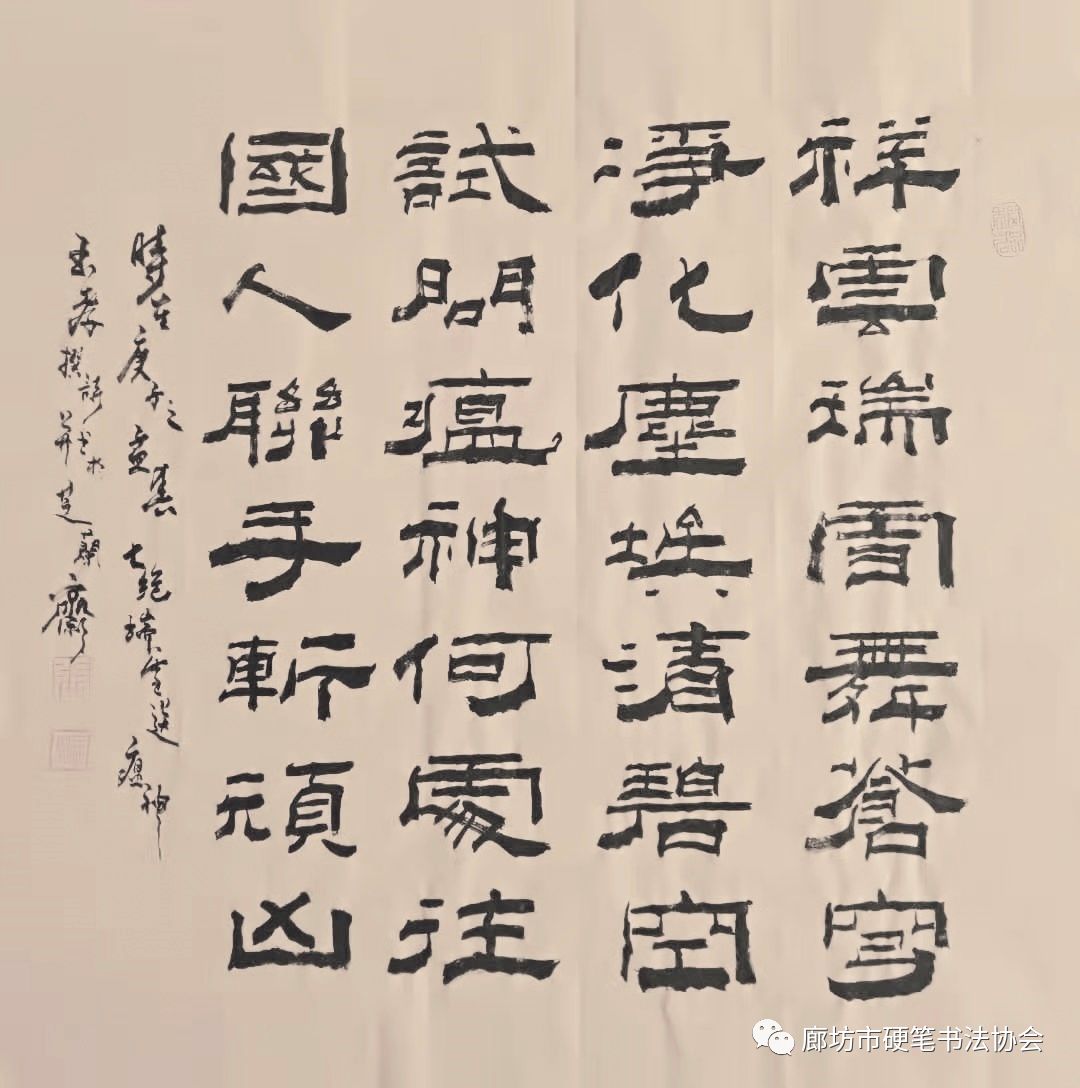 祥雲瑞雪舞蒼穹
凈化塵埃清碧空
試問瘟神何處往
國人聯手斬頑凶
時在庚子之春七絶瑞雪送瘟神
撰詩書於芝蘭齋
廊坊市硬笔书法协会